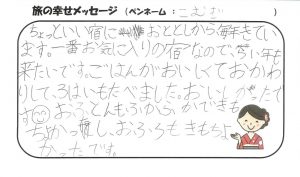 旅の幸せメッセージ (ペンネーム : こむぎ )
ちょっといい宿におととしから毎年きてい
ます。一番お気に入りの宿なので、らい年も
来たいです。ごはんがおいしくておかわ
りして、3ばいもたべました。おいしかったで
す おふとんもふかふかできも
ちよかったし、おふろもきもちよ
かったです。